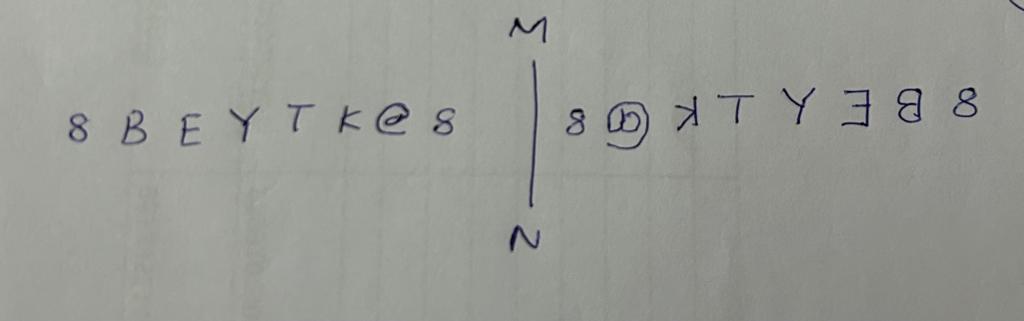 M
8 B E Y T K @ 8 | 8 @ K T Y E B 8
N